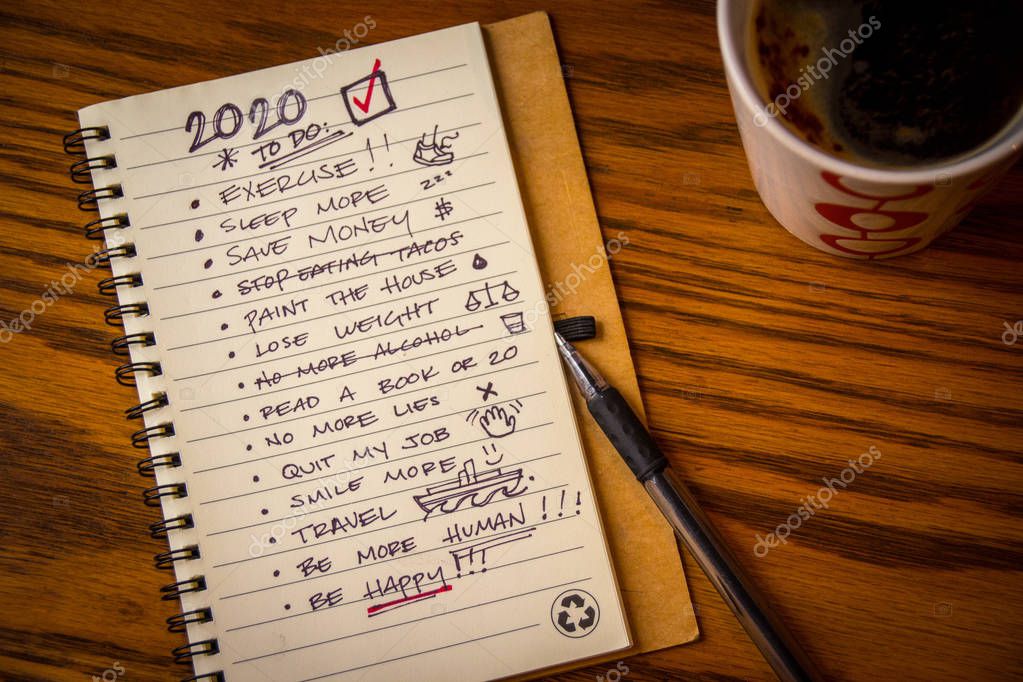 2020
* TO DO:
• EXERCISE!!
• SLEEP MORE zzz
• SAVE MONEY $
• STOP EATING TACOS
• PAINT THE HOUSE
• LOSE WEIGHT
• NO MORE ALCOHOL
• READ A BOOK OR 20
• NO MORE LIES X
• QUIT MY JOB
• SMILE MORE
• TRAVEL
• BE MORE HUMAN!!!
• BE HAPPY!!!
depositphotos